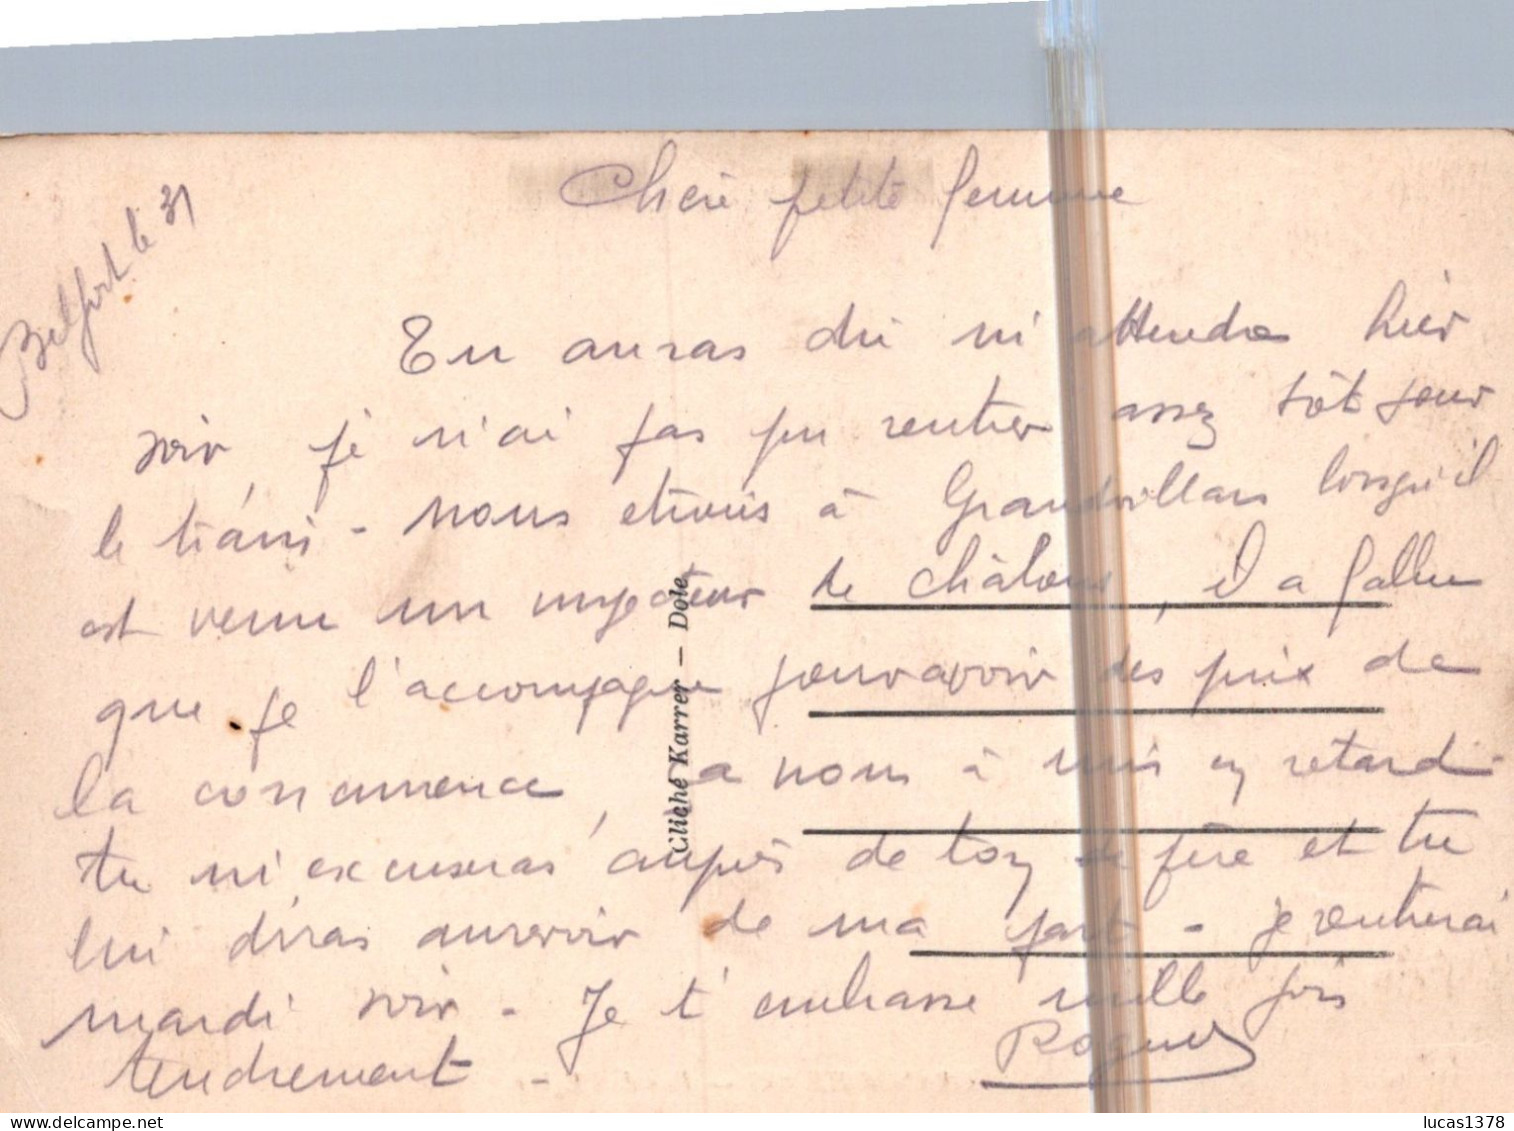 Belfort le 31
Chère petite femme
Tu auras dû m'attendre hier
soir, je n'ai pas pu rentrer assez tôt pour
le train - nous étions à Grandvillars lorsqu'il
est venu un inspecteur de Châlons, il a fallu
que je l'accompagne pour avoir des prix de
la concurrence, a nous à mis en retard -
tu m'excuseras auprès de ton père et tu
lui diras aurevoir de ma part - je rentrerai
mardi soir - Je t'embrasse mille fois
tendrement -
Cliché Karrer — Dole
lucas1378
delcampe.net